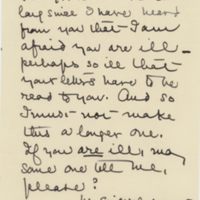 long since I have heard
from you that I am
afraid you are ill —
perhaps so ill that
your letters have to be
read to you. And so
I must not make
this a longer one.
If you are ill, may
some one tell me,
please?